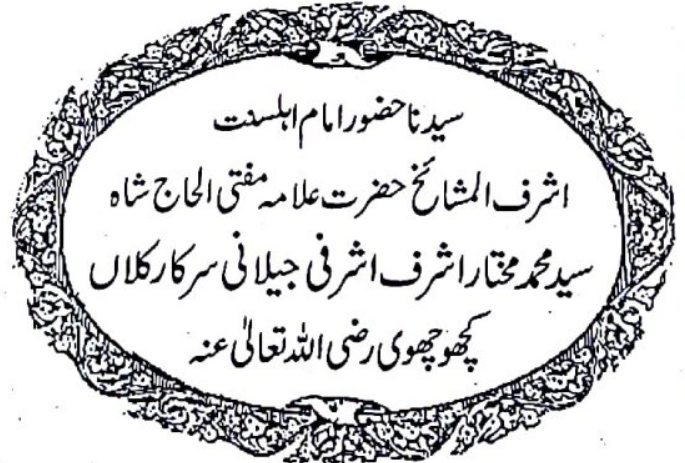 سیدنا حضور امام اہلسنت
اشرف المشائخ حضرت علامہ مفتی الحاج شاہ
سید محمد مختار اشرف اشرفی جیلانی سرکار کلاں
کچھوچھوی رضی اللہ تعالیٰ عنہ